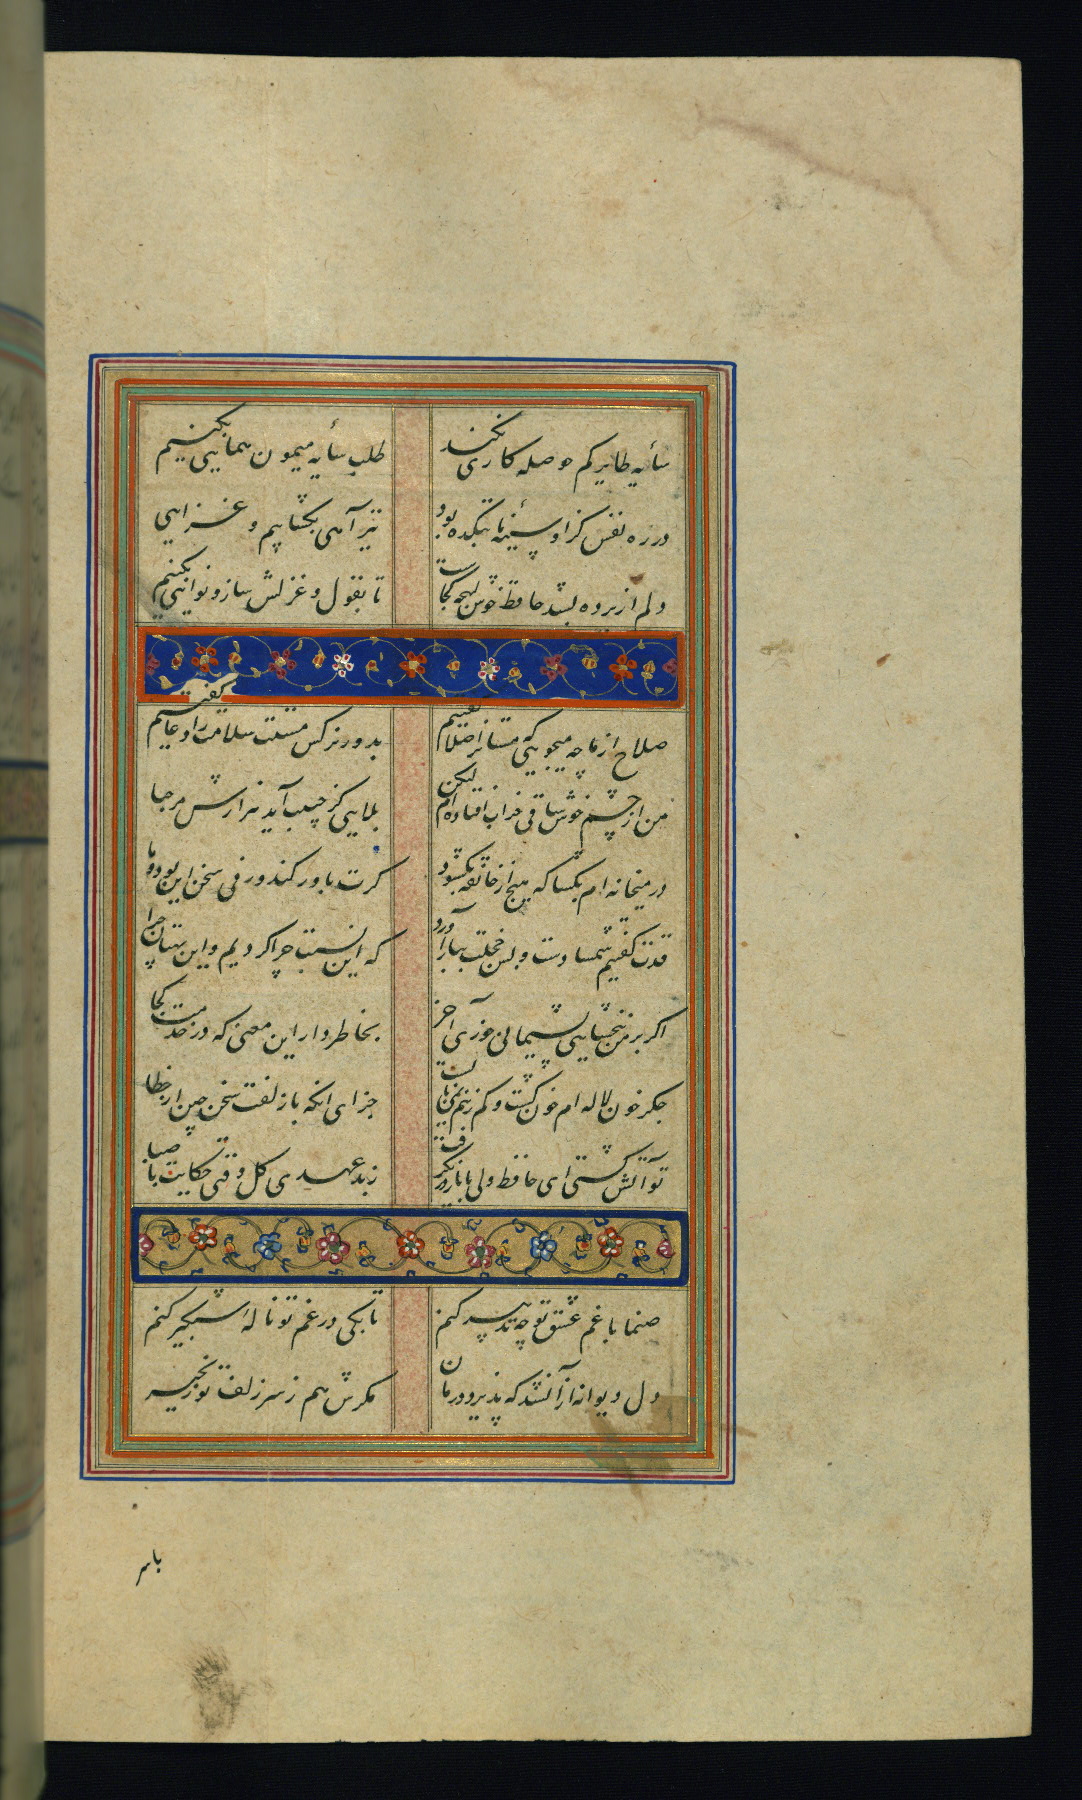 سایه طایر کم حوصله کاری نکند طلب سایه میمون همایی بکنیم
در ره نفس کزاو سینه ما بتکده بود تیر آهی بکشاییم و غزایی
دلم از پرده بشد حافظ خوش لهجه کجاست تا بقول و غزلش ساز و نوایی بکنیم
صلاح از ما چه میجویی که مستانرا صلا گفتیم بدور نرکس مستت سلامت را دعا گفتیم
من از چشم خوش ساقی خراب افتاده‌ام لیکن بلایی کز حبیب آید هزارش مرحبا
در میخانه ام بکشا که هیچ از خانقه نکشود کرت باور کند ورنی سخن این بود و ما
قدت گفتیم شمشادست و بس خجلت ببار آورد که این نسبت چرا کردیم و این بهتان چرا
اکر بر من نبخشایی پشیمانی خوری آخر بخاطر دار این معنی که در خدمت کجا
جکر خون لاله ام خون کشت و کم زینم نمی بایست جزای انکه با زلفت سخن چین از خطا
تو آتش کشتی ای حافظ ولی با یار در نکرفت ز بدعهدی کل و قتی حکایت با صبا
صنما با غم عشق تو چه تدبیر کنم تا بکی در غم تو ناله شبکیر کنم
دل دیوانه از آن شد که پذیرد درمان مکرش هم ز سر زلف تو زنجیر
باسر